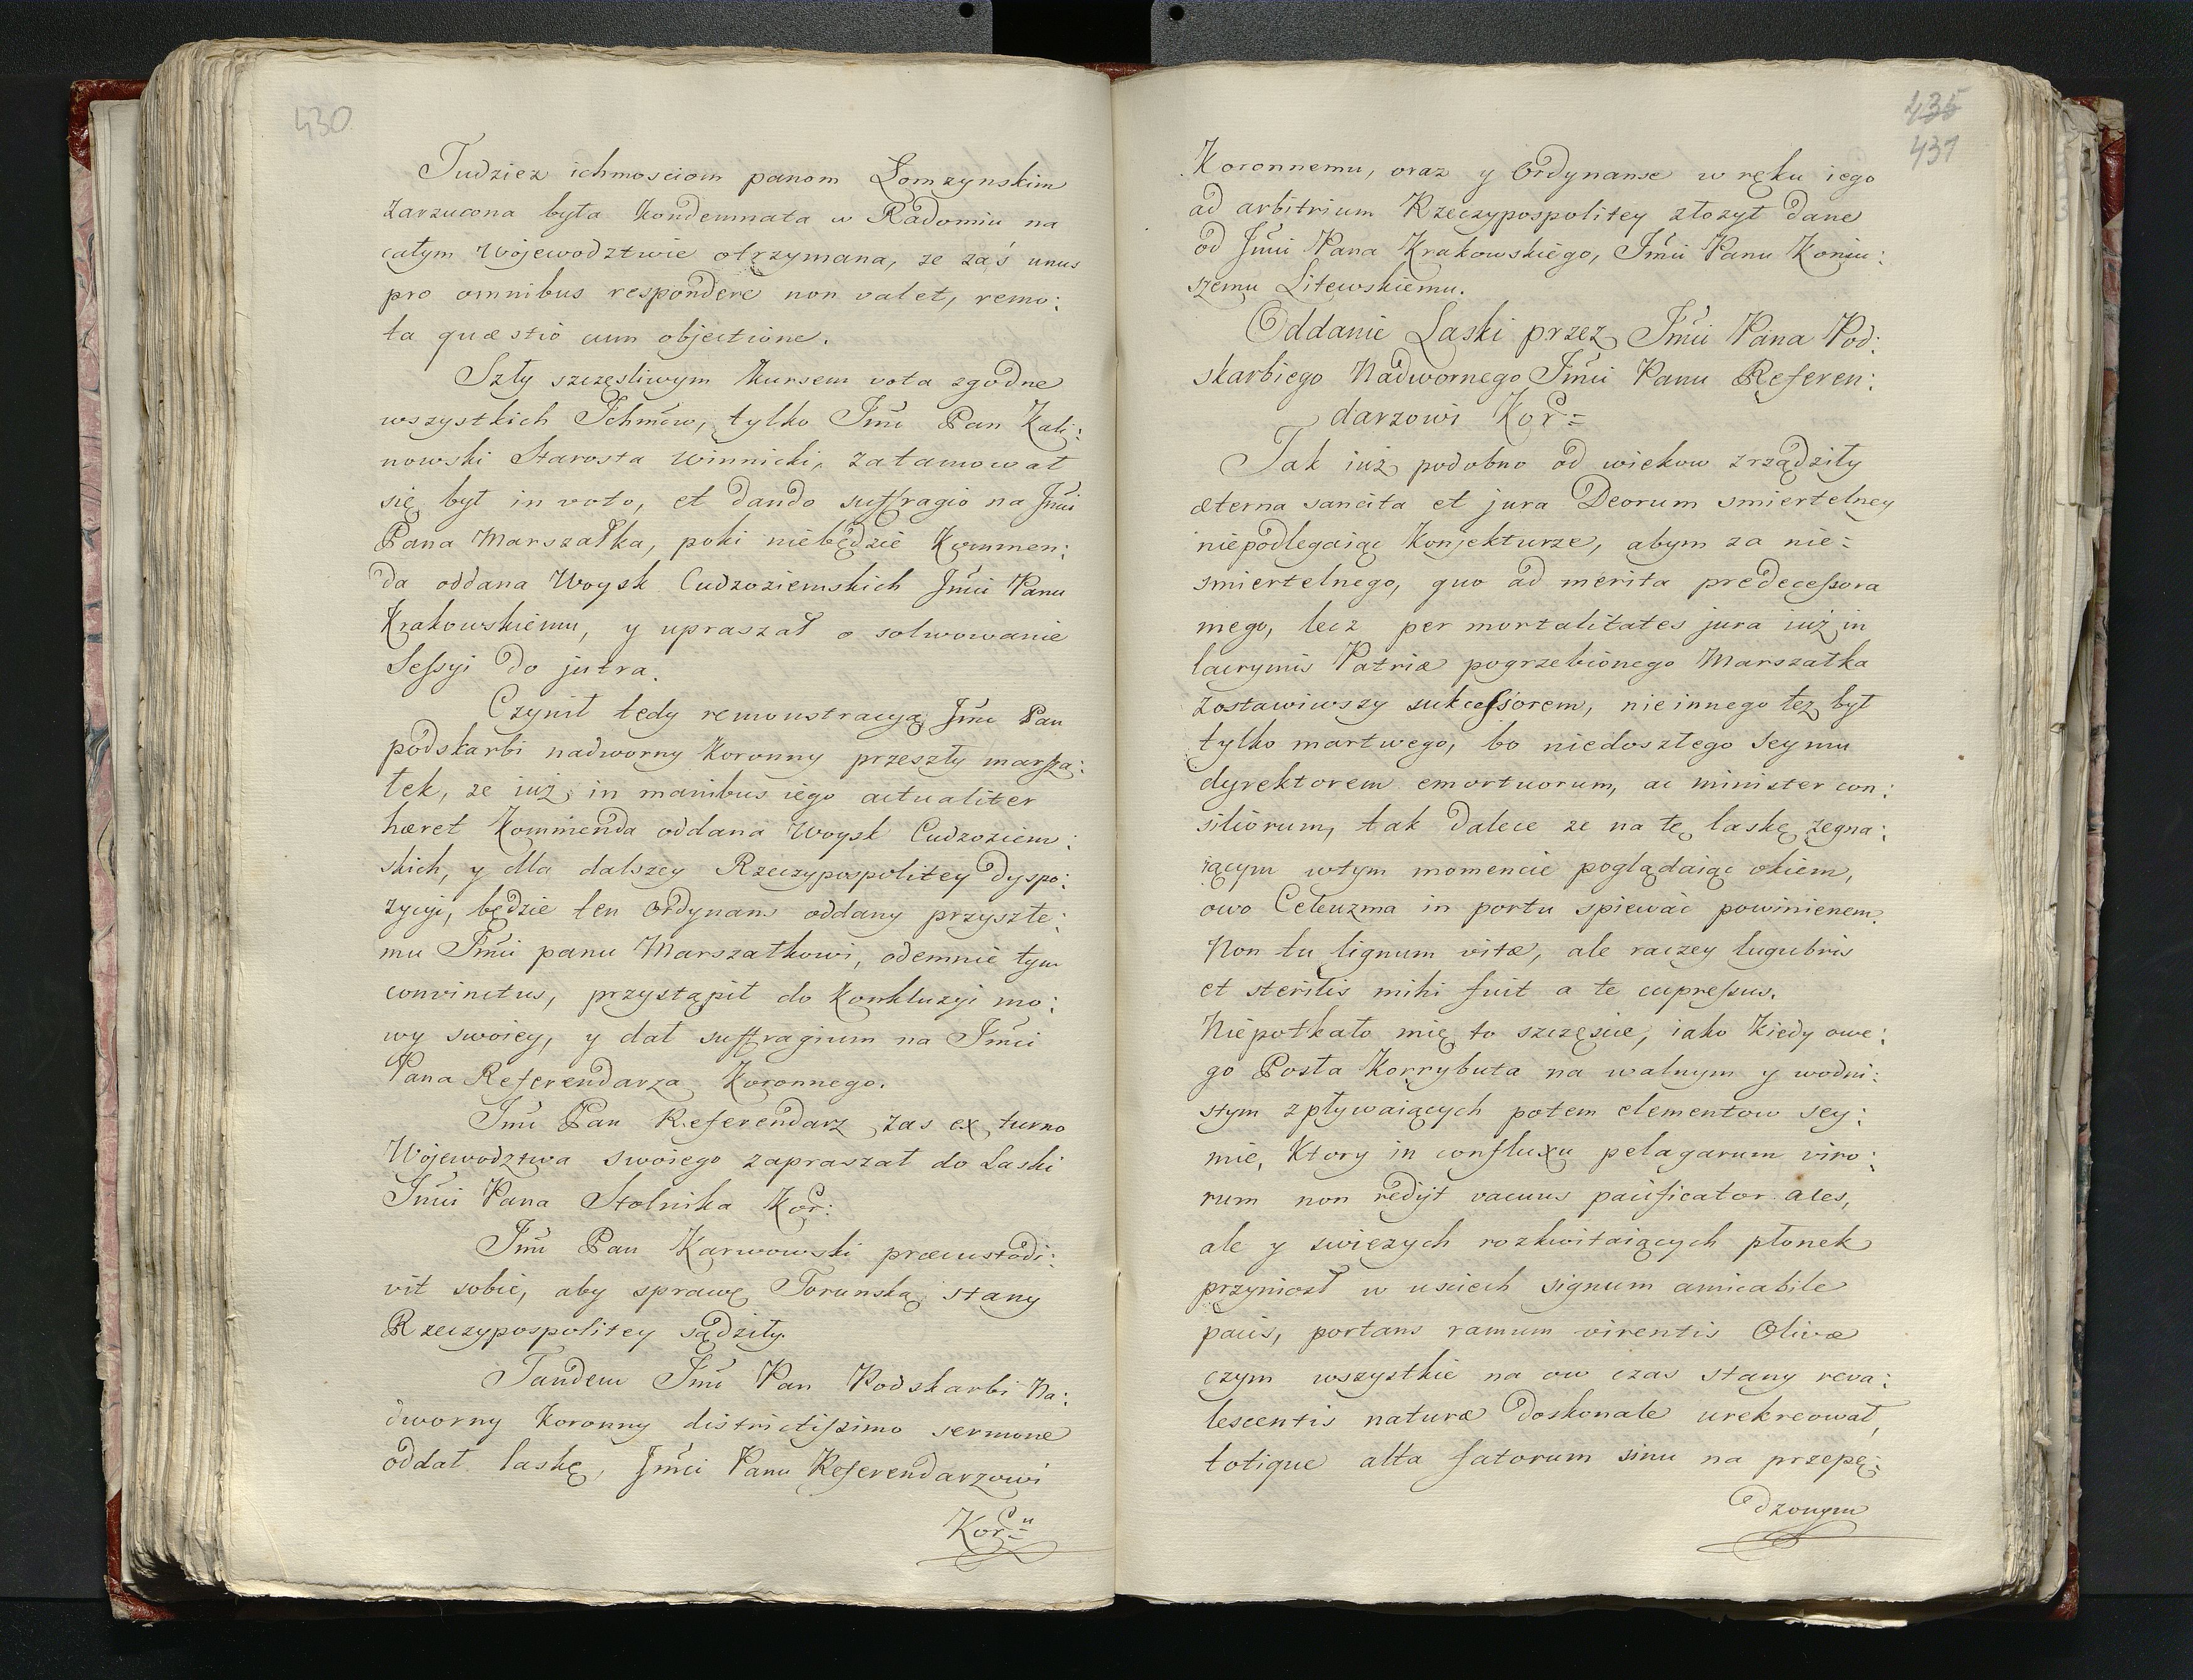 430
Tudziez ichmosciom panom Łomzynskim
zarzucona była Kondemnata w Radomiu na
całym Wojewodztwie otrzymana, ze zaś unus
pro omnibus respondere non valet, remo:
ta quæstio cum objectione.
Szły szczęsliwym kursem vota zgodne
wszystkich Ichmćiow, tylko Jmć Pan Kali:
nowski Starosta Winnicki, zatamował
się był in voto, et dando suffragio na Jmći
Pana Marszałka, poki niebędzie Kommen:
da oddana Woysk Cudzoziemskich Jmći Panu
Krakowskiemu, y upraszał o solwowanie
Sessyi do jutra.
Czynił tedy remonstracyą Jmć Pan
podskarbi nadworny Koronny przeszły marsza:
łek, ze iuż in manibus iego actualiter
hæret Kommenda oddana Woysk Cudzoziem:
skich, y dla dalszey Rzeczypospolitey dyspo:
zycyi, będzie ten Ordynans oddany przyszłe:
mu Jmći panu Marszałkowi, odemnie tym
convinctus, przystąpił do Konkluzyi mo:
wy swoiey, y dał suffragium na Jmći
Pana Referendarza Koronnego.
Jmć Pan Referendarz zas ex turno
Wojewodztwa swoiego zapraszał do Laski
Jmći Pana Stolnika Kor:
Jmć Pan Karwowski præcustodi:
vit sobie, aby sprawę Torunską stany
Rzeczypospolitey sądziły.
Tandem Jmć Pan Podskarbi Na:
dworny Koronny districtissimo sermone
oddał laskę, Jmći Panu Referendarzowi
Kor=u
435
431
Koronnemu, oraz y Ordynanse w ręku iego
ad arbitrium Rzeczypospolitey złozył dane
od Jmći Pana Krakowskiego, Jmći Panu Koniu:
szemu Litewskiemu.
Oddanie Laski przez Jmći Pana Pod:
skarbiego Nadwornego Jmći Panu Referen:
darzowi Kor=
Tak iuż podobno od wiekow zrządziły
æterna sancita et jura Deorum smiertelney
niepodlegaiąc Konjekturze, abym za nie=
smiertelnego, quo ad merita predecessora
mego, lecz per mortalitates jura iuż in
lacrymis Patriæ pogrzebionego Marszałka
zostawiwszy sukcessorem, nieinnego tez był
tylko martwego, bo niedoszłego Seymu
dyrektorem emortuorum, ac minister con:
siliorum, tak dalece ze na tę laskę zegna:
iącym wtym momencie poglądaiąc okiem,
owo Celeuzma in portu spiewać powinienem.
Non tu lignum vitæ, ale raczey lugubris
et sterilis mihi fuit a te cupressus.
Niepotkało mię to szczęscie, iako kiedy owe:
go Posła Korrybuta na walnym y wodni:
stym zpływaiących potem elementow sey:
mie, Ktory in confluxu pelagarum viro:
rum non redijt vacuus pacificator ales,
ale y swiezych rozkwitaiących płonek
przyniosł w usciech signum amicabile
pacis, portans ramum virentis Olivæ
czym wszystkie na ow czas stany reva:
lescentis naturæ doskonale urekreował,
totique alta fatorum sinu na przepę:
dzonym